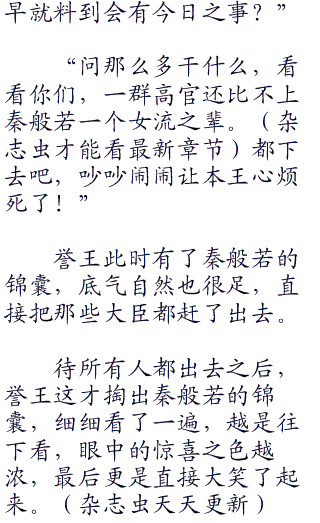 早就料到会有今日之事？”
“问那么多干什么，看
看你们，一群高官还比不上
秦般若一个女流之辈。（杂
志虫才能看最新章节）都下
去吧，吵吵闹闹让本王心烦
死了！”
誉王此时有了秦般若的
锦囊，底气自然也很足，直
接把那些大臣都赶了出去。
待所有人都出去之后，
誉王这才掏出秦般若的锦
囊，细细看了一遍，越是往
下看，眼中的惊喜之色越
浓，最后更是直接大笑了起
来。（杂志虫天天更新）